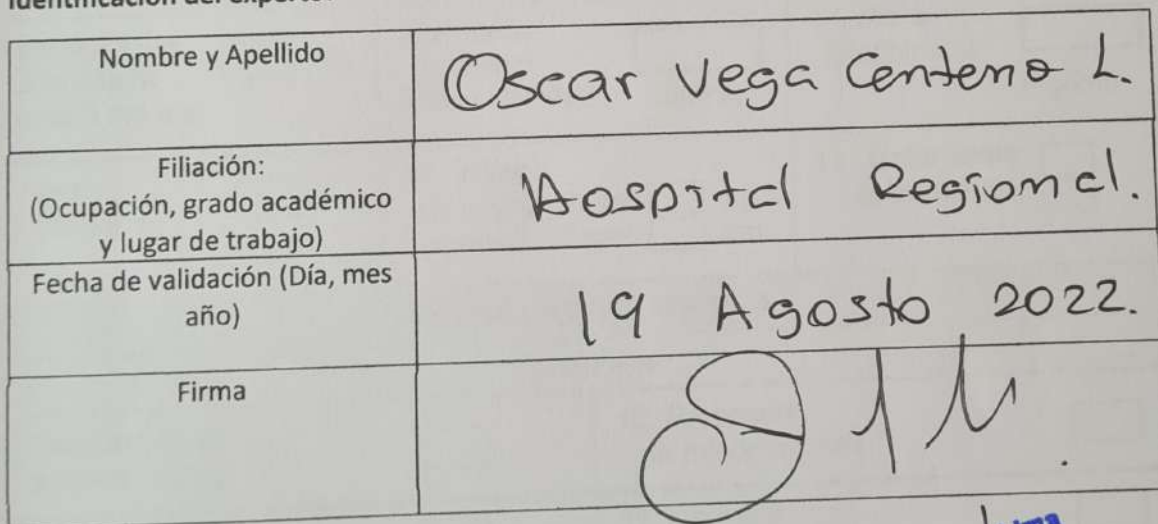 Identificación del experto
Nombre y Apellido
Oscar Vega Centeno L.
Filiación:
(Ocupación, grado académico
y lugar de trabajo)
Hospital Regional.
Fecha de validación (Día, mes
año)
19 Agosto 2022.
Firma